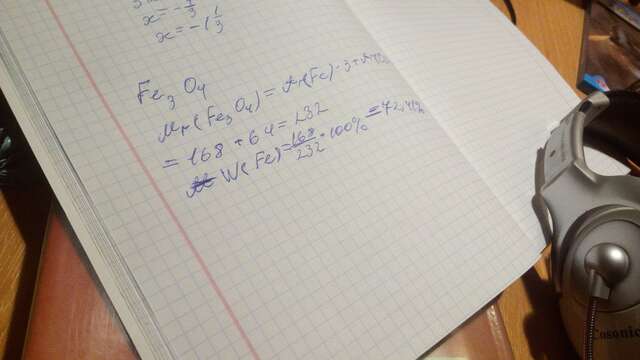 x = -4/3
x = -1 1/3
Fe₃O₄
Mr(Fe₃O₄) = Ar(Fe)·3+Ar(O)
= 168 + 64 = 232
W(Fe) = 168/232 · 100% = 72,41%
Cosonic